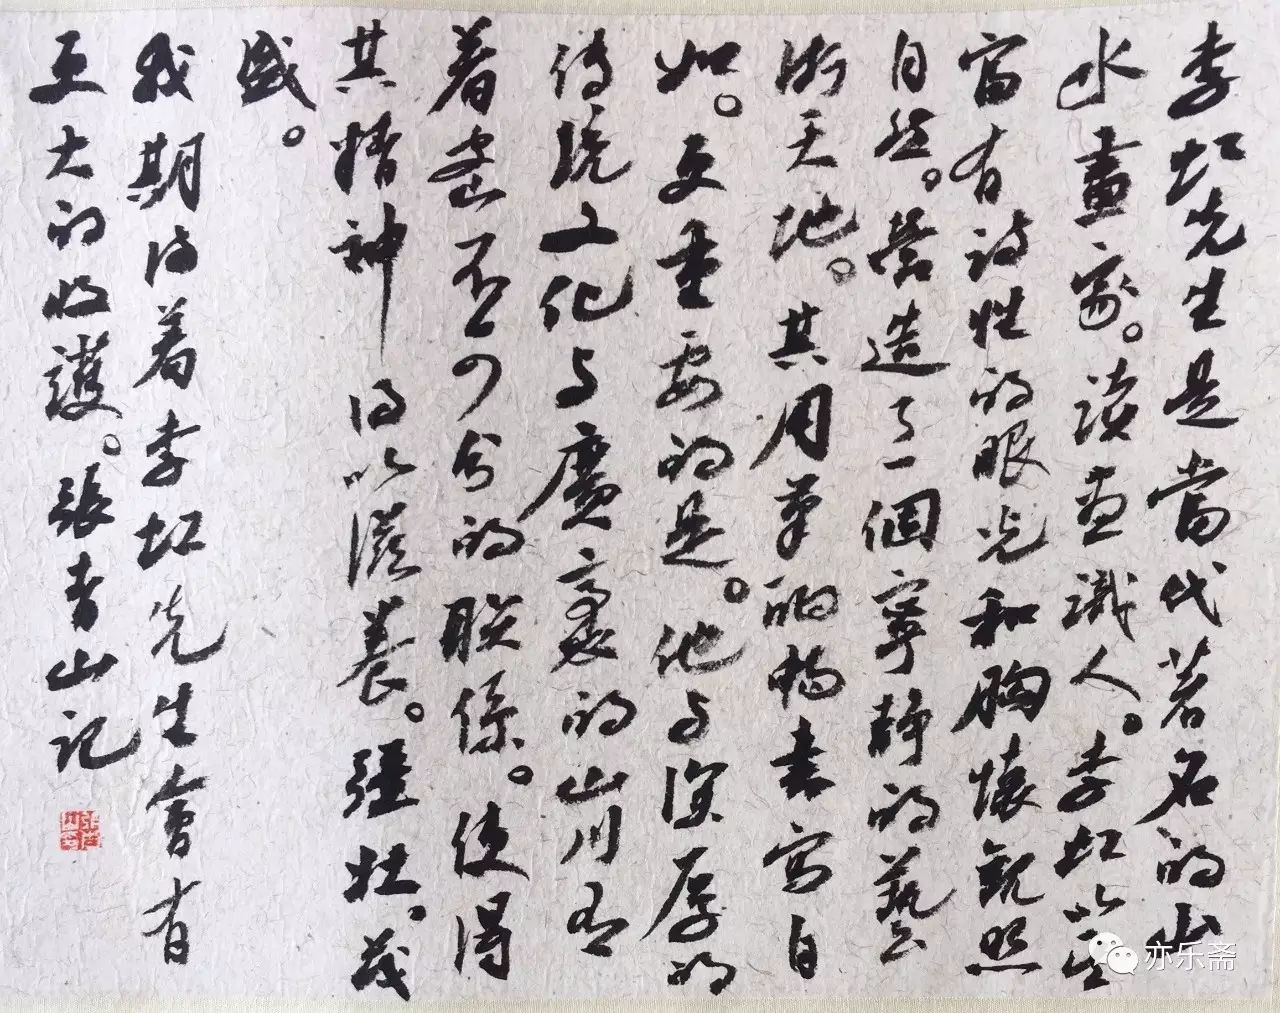 李虹先生是當代著名的山
水畫家。讀畫識人。李虹以其
富有詩性的眼光和胸懷觀照
自然。營造了一個寧靜的藝
術天地。其用筆酣暢書寫自
如。更重要的是。他与深厚的
傳統文化与廣袤的山川有
着密不可分的聯係。使得
其精神得以滋養。強壯。茂
盛。
我期待着李虹先生會有
更大的收獲。張青山記
亦乐斋